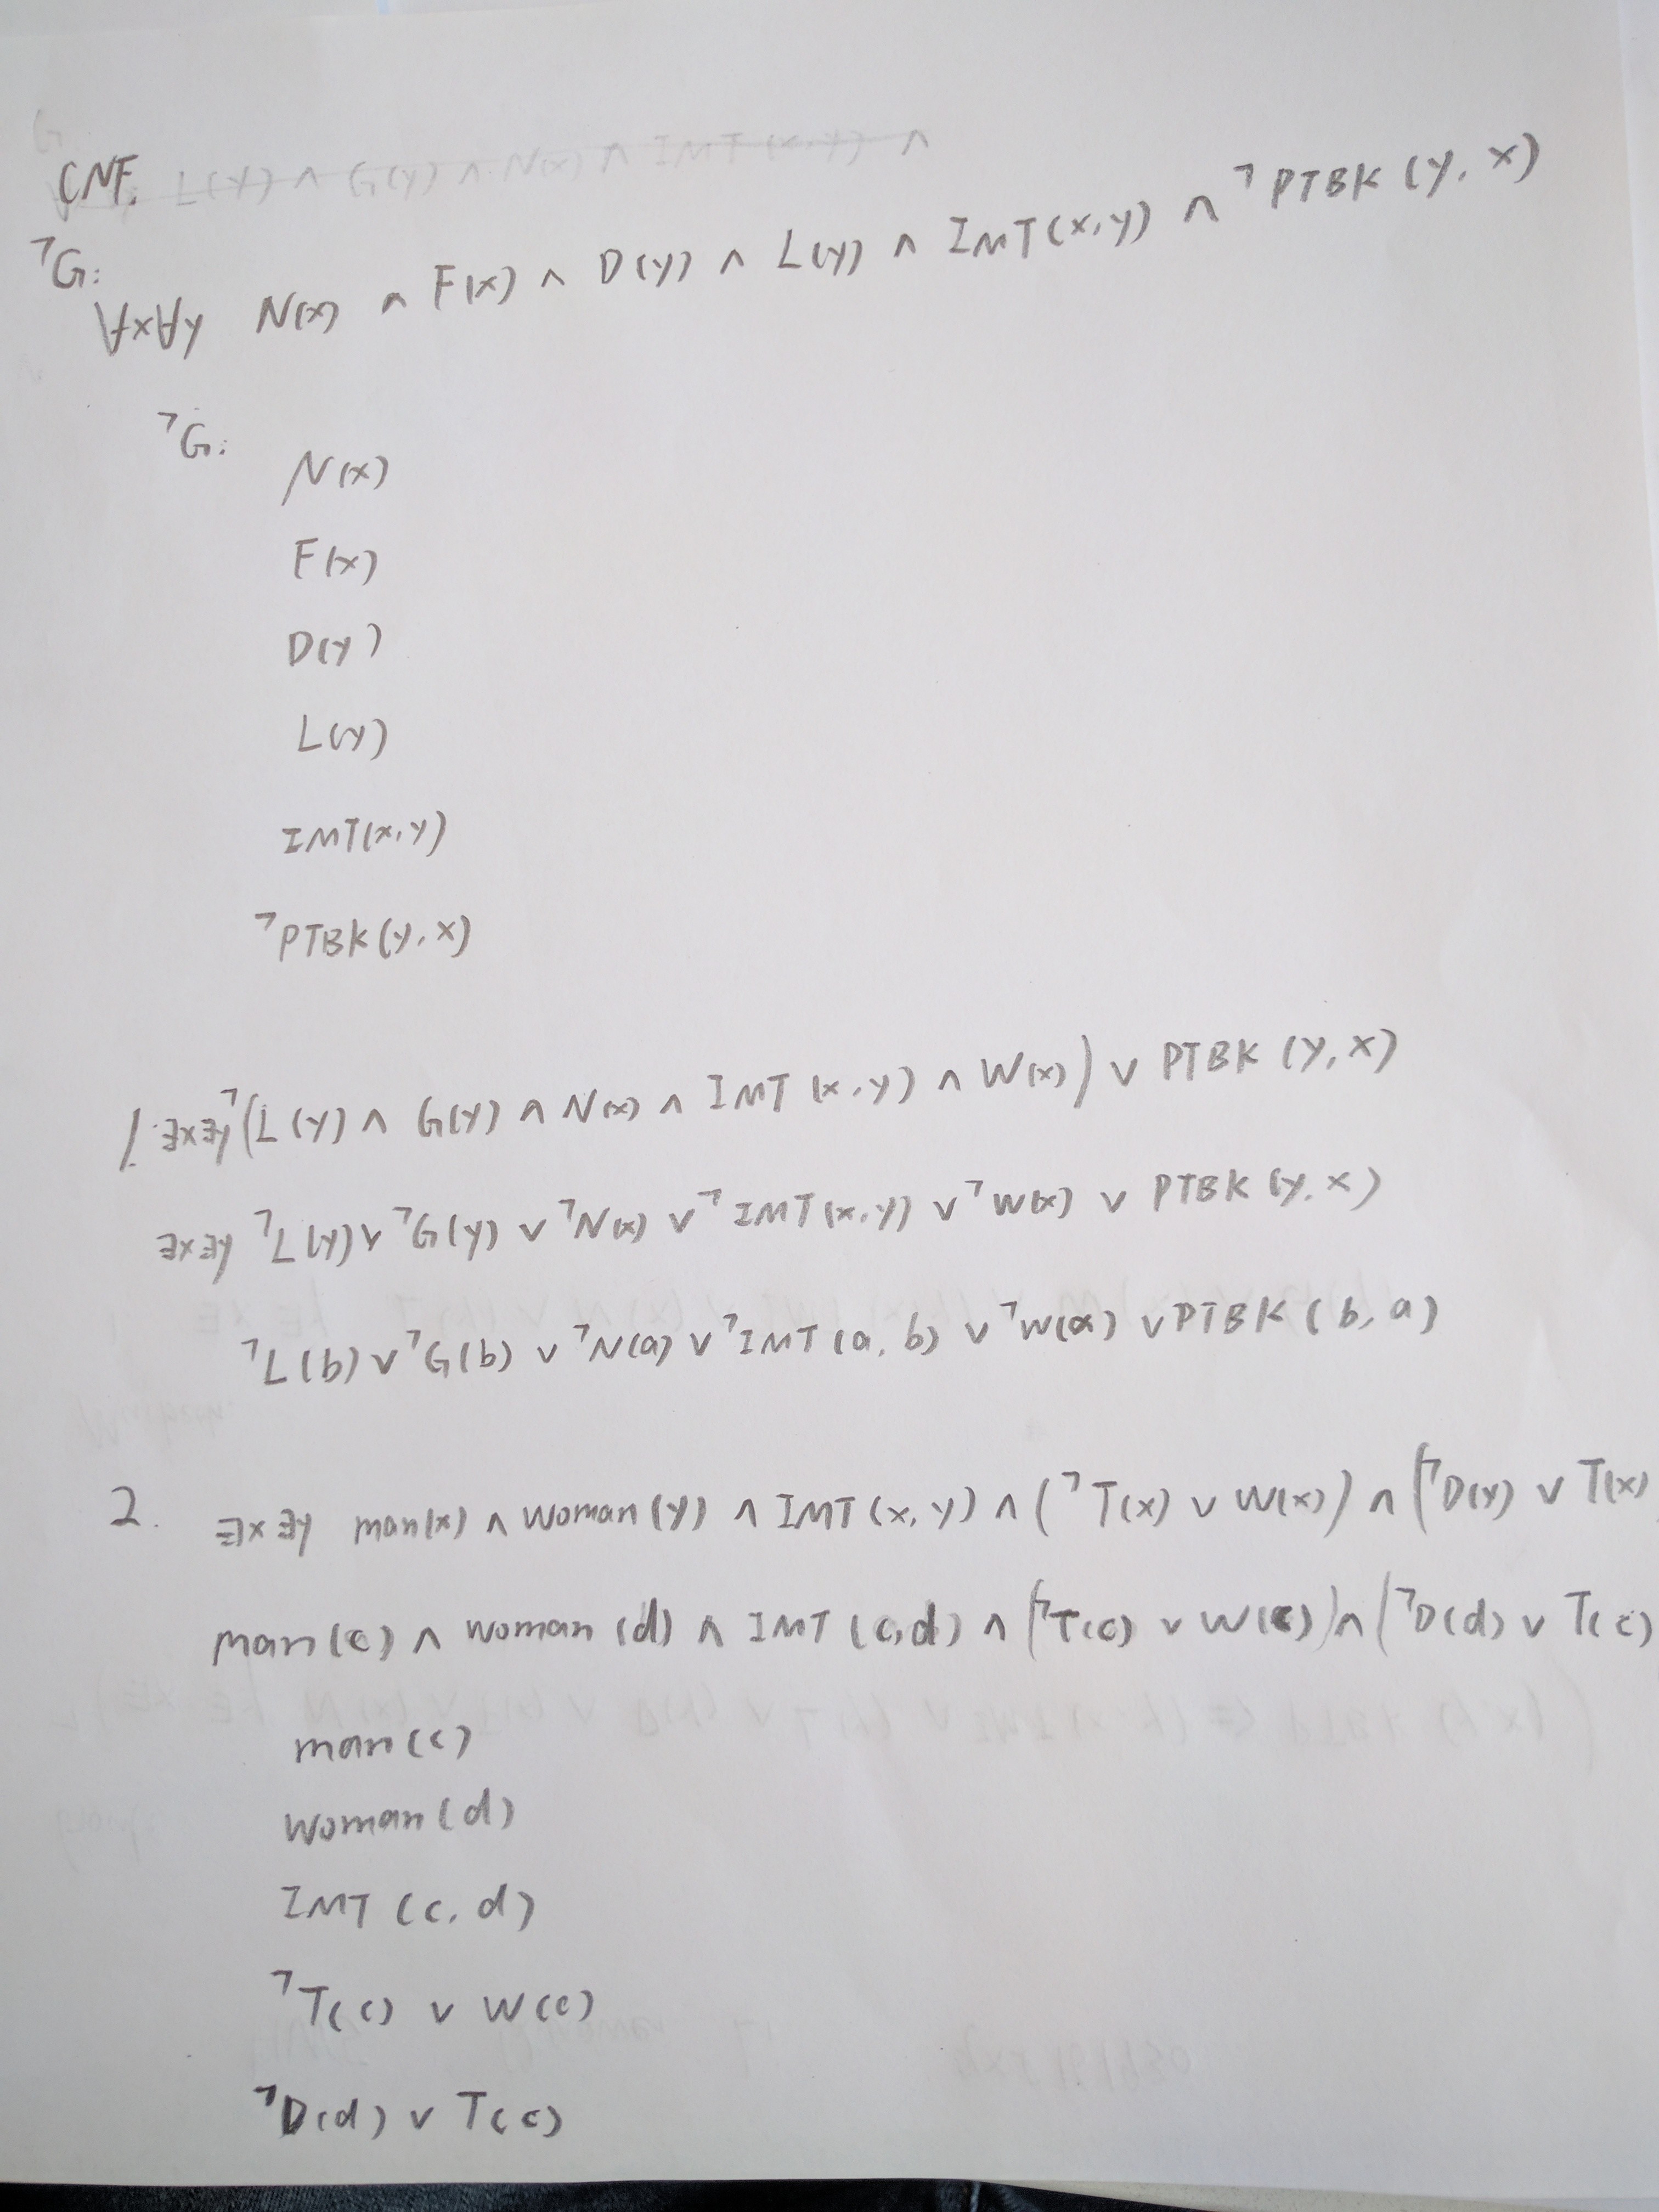 CNF.
¬G:
∀x∀y N(x) ∧ F(x) ∧ D(y) ∧ L(y) ∧ IMT(x,y) ∧ ¬PTBK(y,x)
¬G:
N(x)
F(x)
D(y)
L(y)
IMT(x,y)
¬PTBK(y,x)
1. ∃x∃y ¬(L(y) ∧ G(y) ∧ N(x) ∧ IMT(x,y) ∧ W(x)) ∨ PTBK(y,x)
∃x∃y ¬L(y) ∨ ¬G(y) ∨ ¬N(x) ∨ ¬IMT(x,y) ∨ ¬W(x) ∨ PTBK(y,x)
¬L(b) ∨ ¬G(b) ∨ ¬N(a) ∨ ¬IMT(a,b) ∨ ¬W(a) ∨ PTBK(b,a)
2. ∃x∃y man(x) ∧ woman(y) ∧ IMT(x,y) ∧ (¬T(x) ∨ W(x)) ∧ (¬D(y) ∨ T(x)
man(c) ∧ woman(d) ∧ IMT(c,d) ∧ (¬T(c) ∨ W(c)) ∧ (¬D(d) ∨ T(c)
man(c)
woman(d)
IMT(c,d)
¬T(c) ∨ W(c)
¬D(d) ∨ T(c)